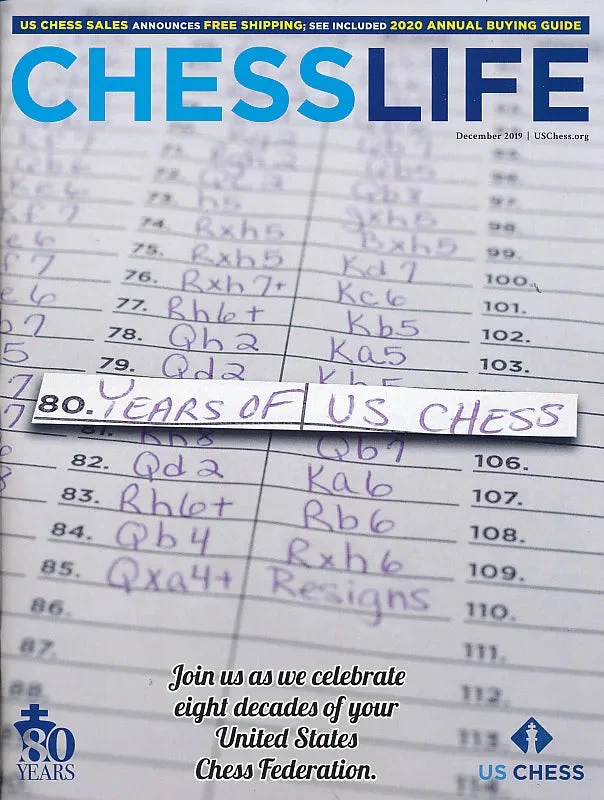 US CHESS SALES ANNOUNCES FREE SHIPPING; SEE INCLUDED 2020 ANNUAL BUYING GUIDE
CHESSLIFE
December 2019 | USChess.org
73. h5 gxh5 98.
74. Rxh5 Bxh5 99.
75. Rxh5 Kd7 100.
76. Rxh7+ Kc6 101.
77. Rh6+ Kb5 102.
78. Qh2 Ka5 103.
79. Qd2
80. YEARS OF US CHESS
81. Rh8 Qb7 106.
82. Qd2 Ka6 107.
83. Rh6+ Rb6 108.
84. Qb4 Rxh6 109.
85. Qxa4+ Resigns 110.
86. 111.
87. 112.
88. 113.
114.
Join us as we celebrate
eight decades of your
United States
Chess Federation.
80
YEARS
US CHESS